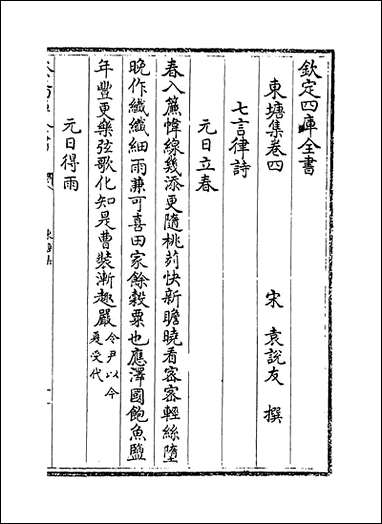 欽定四庫全書
東塘集卷四
宋 袁說友 撰
七言律詩
元日立春
春入簾幃線幾添更隨桃茢快新瞻曉看密密輕絲墮
晚作纖纖細雨兼可喜田家餘穀粟也應澤國飽魚鹽
年豐更樂弦歌化知是曹裝漸趣嚴令尹以今夏受代
元日得雨